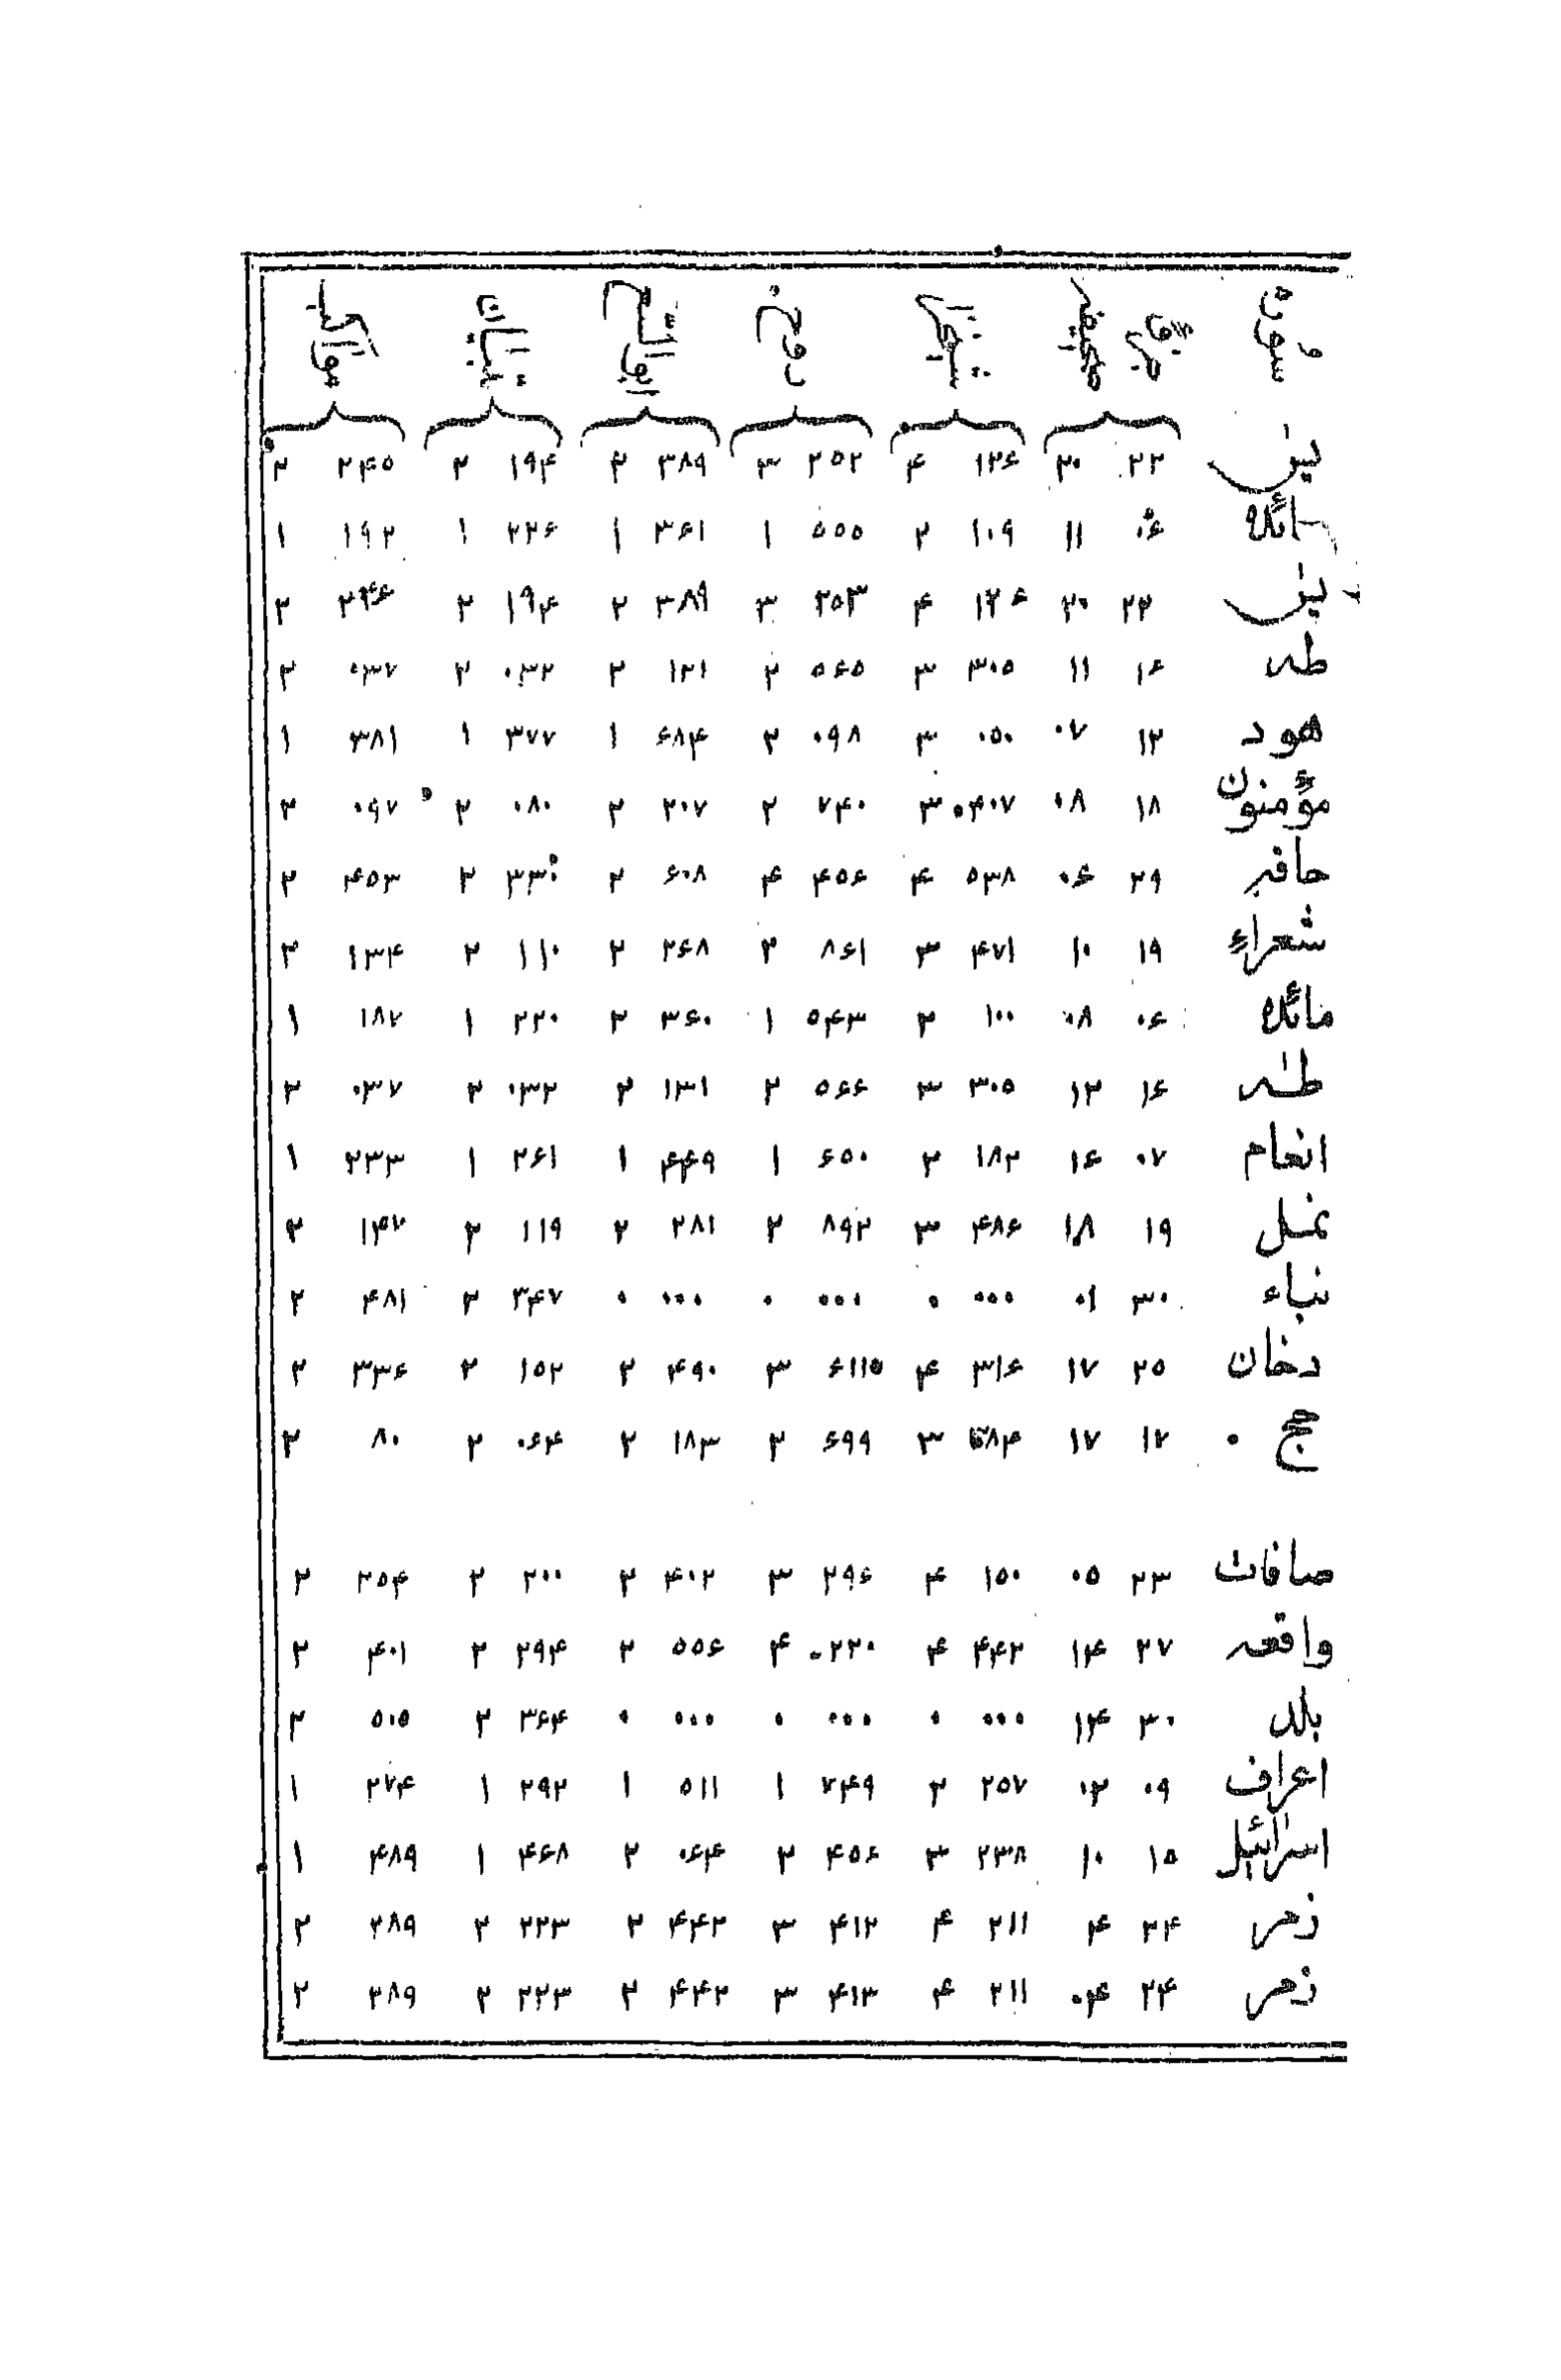 سوره
یس ۲۲ ۲۰ ۱۲۶ ۴ ۲۵۲ ۳ ۳۸۹ ۲ ۱۹۴ ۲ ۲۴۵ ۲
مائده ۰۶ ۱۱ ۱۰۹ ۲ ۵۵۵ ۱ ۳۶۱ ۱ ۲۲۶ ۱ ۱۹۲ ۱
یس ۲۲ ۲۰ ۱۲۶ ۴ ۲۵۳ ۳ ۳۸۹ ۲ ۱۹۴ ۲ ۲۴۶ ۲
طه ۱۶ ۱۱ ۳۰۵ ۳ ۵۶۵ ۲ ۱۲۱ ۲ ۰۳۲ ۲ ۰۳۷ ۲
هود ۱۲ ۰۷ ۰۵۰ ۳ ۰۹۸ ۲ ۶۸۴ ۱ ۳۷۷ ۱ ۳۸۱ ۱
مؤمنون ۱۸ ۰۸ ۴۰۷ ۳ ۷۴۰ ۲ ۲۰۷ ۲ ۰۸۰ ۲ ۰۹۷ ۲
حاقه ۲۹ ۰۶ ۵۳۸ ۴ ۴۵۶ ۴ ۶۰۸ ۲ ۳۳۰ ۲ ۴۵۳ ۲
شعراء ۱۹ ۱۰ ۴۷۱ ۳ ۸۶۱ ۲ ۲۶۸ ۲ ۱۱۰ ۲ ۱۳۴ ۲
مائده ۰۶ ۰۸ ۱۰۰ ۲ ۵۴۳ ۱ ۳۶۰ ۲ ۲۲۰ ۱ ۱۸۷ ۱
طه ۱۶ ۱۲ ۳۰۵ ۳ ۵۶۶ ۲ ۱۳۱ ۲ ۰۳۲ ۲ ۰۳۷ ۲
انعام ۰۷ ۱۶ ۱۸۲ ۲ ۶۵۰ ۱ ۴۴۹ ۱ ۲۶۱ ۱ ۲۳۳ ۱
نمل ۱۹ ۱۸ ۴۸۶ ۳ ۸۹۲ ۲ ۲۸۱ ۲ ۱۱۹ ۲ ۱۴۷ ۲
نباء ۳۰ ۰۱ ۰۰۰ ۰ ۰۰۰ ۰ ۰۰۰ ۰ ۳۴۷ ۲ ۴۸۱ ۲
دخان ۲۵ ۱۷ ۳۱۶ ۴ ۶۱۱۵ ۳ ۴۹۰ ۲ ۱۵۲ ۲ ۳۳۶ ۲
حج ۰ ۱۷ ۱۷ ۳ ۶۹۹ ۲ ۱۸۳ ۲ ۰۶۴ ۲ ۸۰ ۲
صافات ۲۳ ۰۵ ۱۵۰ ۴ ۲۹۶ ۳ ۴۰۲ ۲ ۲۰۰ ۲ ۲۵۴ ۲
واقعه ۲۷ ۱۴ ۴۴۲ ۴ ۲۲۰ ۴ ۵۵۶ ۲ ۲۹۴ ۲ ۴۰۱ ۲
بلد ۳۰ ۱۴ ۰۰۰ ۰ ۰۰۰ ۰ ۰۰۰ ۰ ۳۶۴ ۲ ۵۰۵ ۲
اعراف ۰۹ ۰۲ ۲۵۷ ۲ ۷۴۹ ۱ ۵۱۱ ۱ ۲۹۲ ۱ ۲۷۴ ۱
اسرائیل ۱۵ ۱۰ ۲۳۸ ۳ ۴۵۶ ۲ ۰۶۴ ۲ ۴۶۸ ۱ ۴۸۹ ۱
زمر ۲۴ ۴ ۲۱۱ ۴ ۴۱۲ ۳ ۴۴۲ ۲ ۲۲۳ ۲ ۲۸۹ ۲
زمر ۲۴ ۰۴ ۲۱۱ ۴ ۴۱۳ ۳ ۴۴۲ ۲ ۲۲۳ ۲ ۲۸۹ ۲